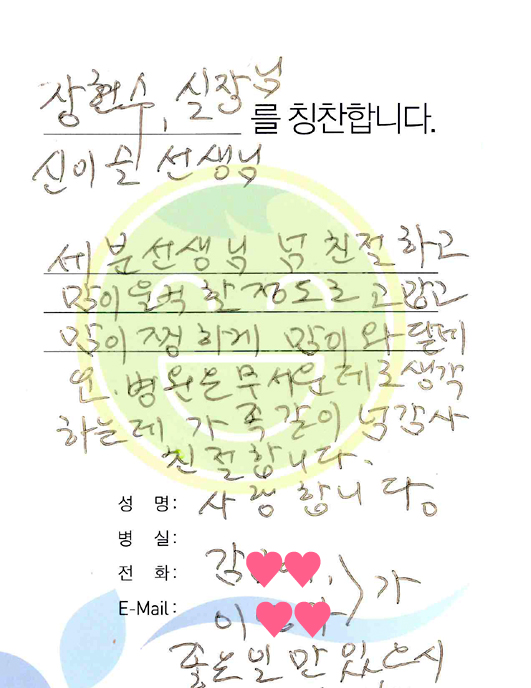 장현수, 실장님
를 칭찬합니다.
신이슬 선생님
세분선생님 넘 친절하고
많이울컥 할정도로 고맙고
맘이 찡하게 많이와 닿네
요. 병원은무서운데로생각
하는데 가족같이 넘감사
친절합니다.
사랑합니다.
성 명:
병 실:
전 화:
E-Mail:
김
이
가
좋은일만 있으시